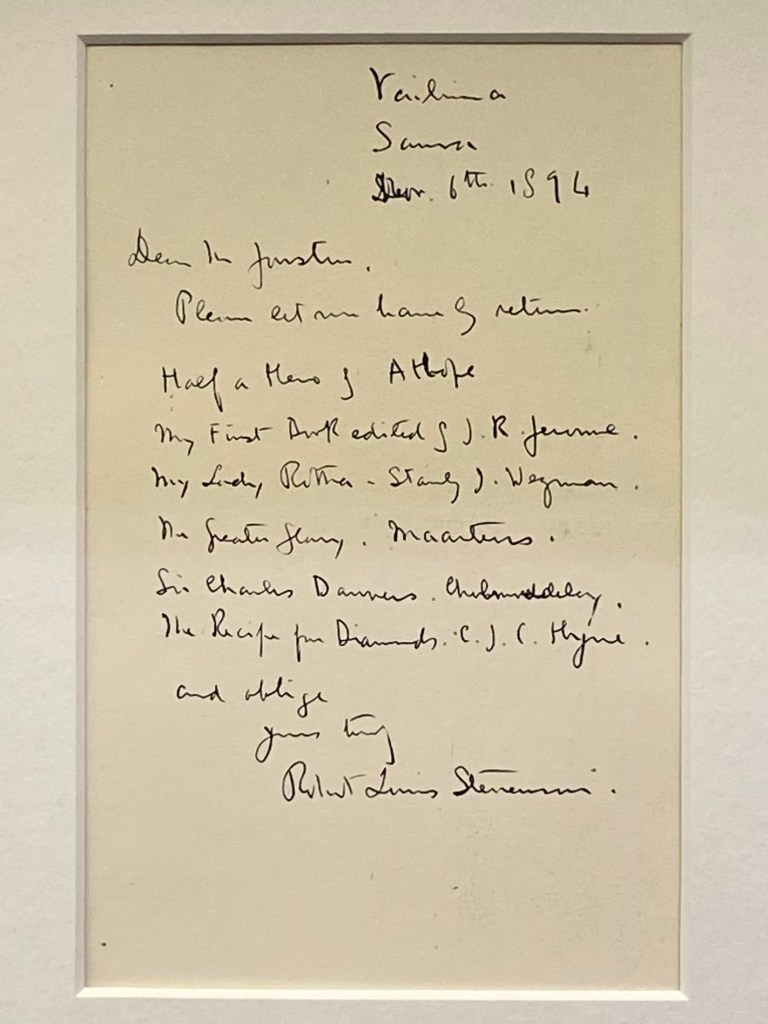 Vailima
Samoa
Decr. 6th 1894
Dear Mr
Please let me have by return.
Half a Hero by A Hope
My First Book edited by J. K. Jerome.
My Lady Rotha - Stanley J. Weyman.
The Greater Glory. Maartens.
Sir Charles Danvers. Cholmondeley.
The Recipe for Diamonds. C. J. C. Hyne.
and oblige
yours truly
Robert Louis Stevenson.